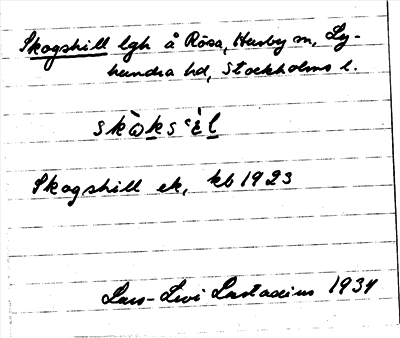 Skogshill lgh å Rösa, Husby m, Ly-
hundra hd, Stockholms l.
Skogshill ek, kb 1923
Lars-Levi Læstadius 1934